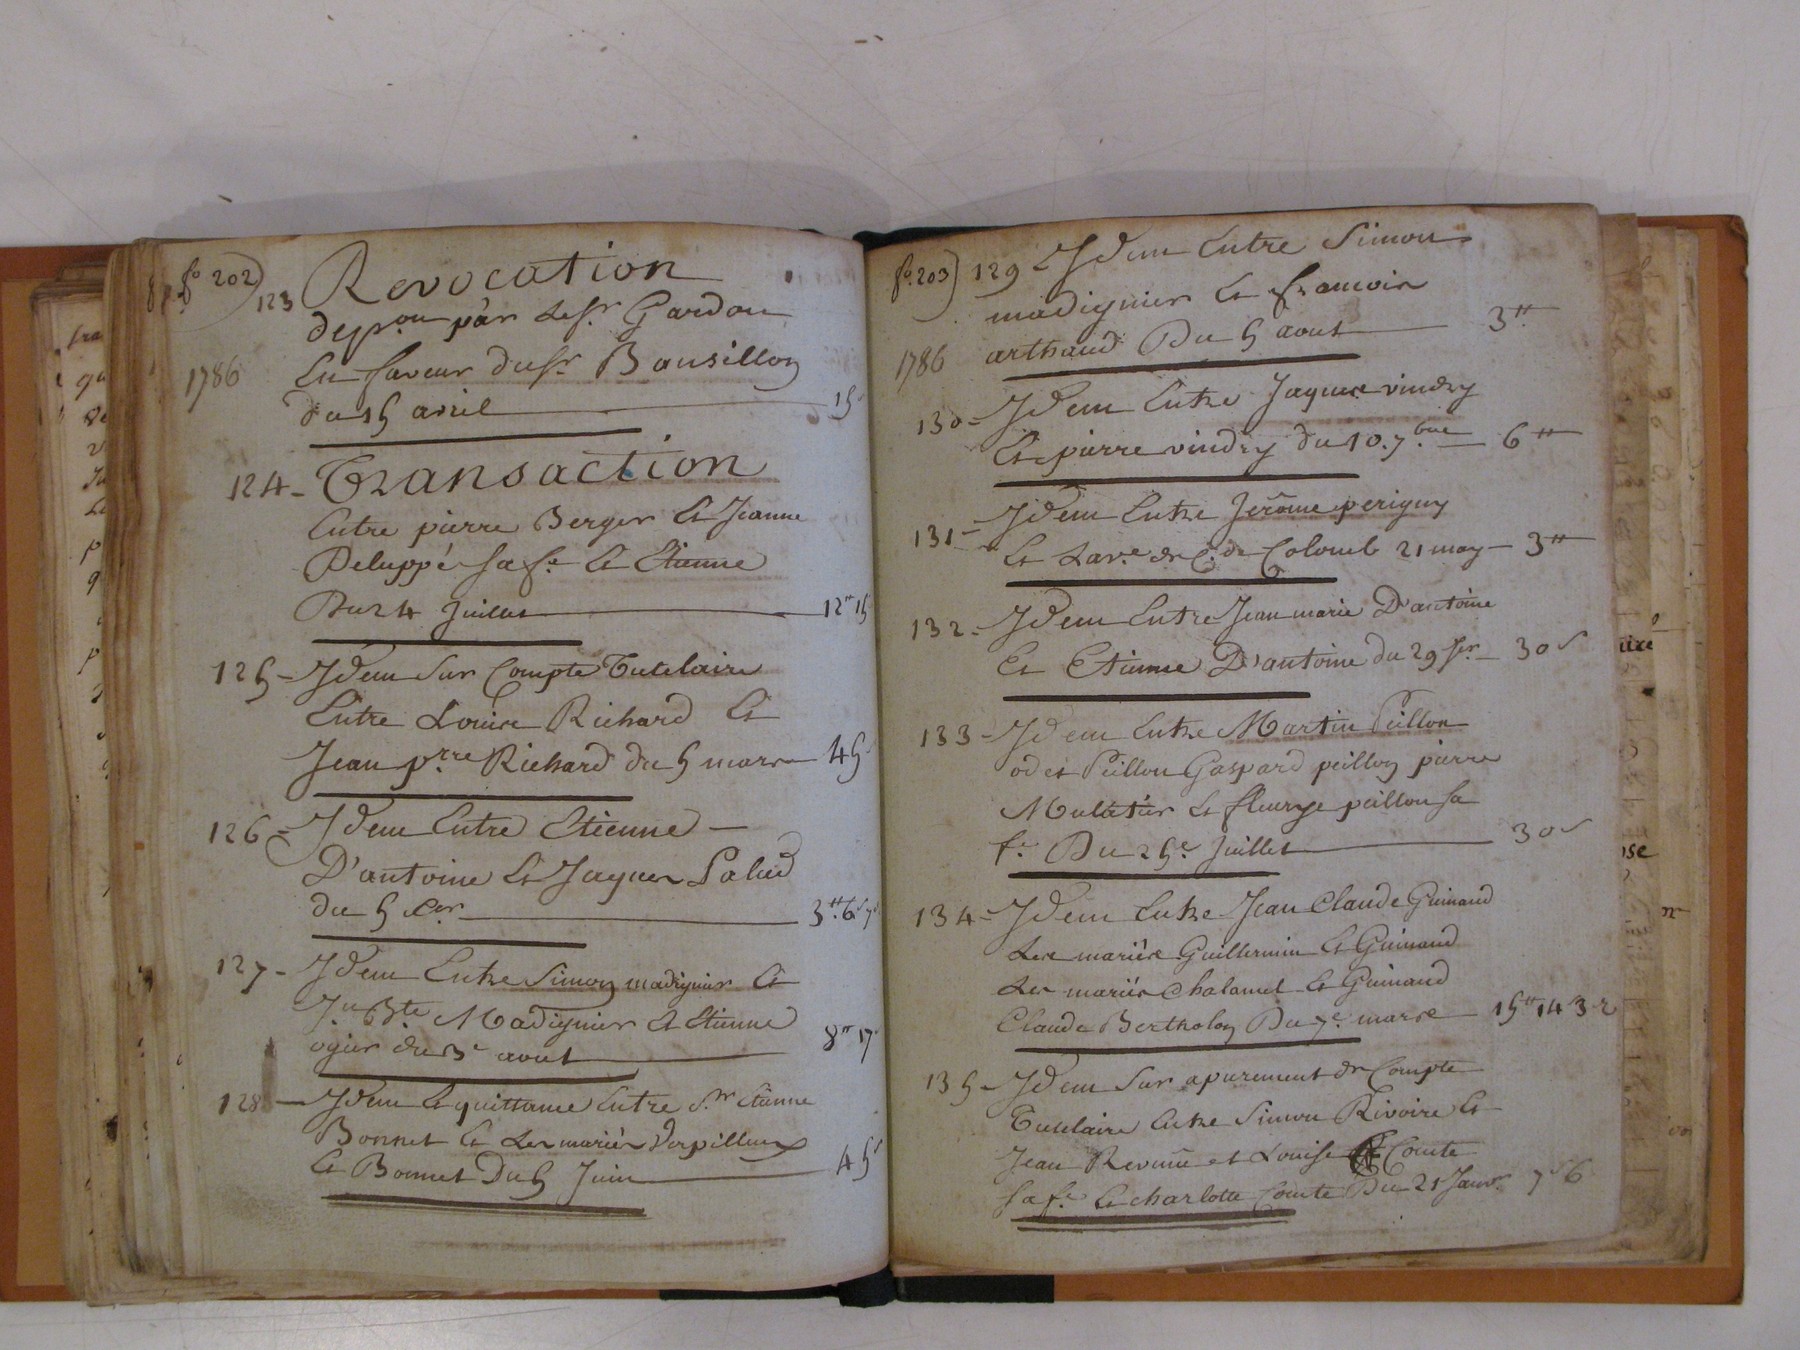 fo 202) 123 Revocation
de pr.on par le Sr Gardon
1786 En faveur du Sr Bansillon
du 15 avril 15s
124 - Transaction
Entre pierre Berger Et Jeanne
Deluppé sa fe. Et Etienne
Du 24 Juillet 12tt 15
125 - Idem Sur Compte Tutelaire
Entre Louise Richard Et
Jean prre Richard du 5 mars 45s
126 - Idem Entre Etienne -
D'antoine Et Jaques Palud
du 5 xer 3tt. 6s 7d
127 - Idem Entre Simon madignier Et
Jn Bte Madignier Et Etienne
ogier du 3e aout 8tt 17s
128 - Idem Et quittance Entre Sr Etienne
Bonnet Et Les mariés Verpilleux
Et Bonnet Du 5 Juin 45s
fo. 203) 129 Idem Entre Simon
madignier Et francois
1786 arthaud Du 5 aout 3tt
130 - Idem Entre Jaques vindry
Et pierre vindry du 10. 7.bre 6tt
131 - Idem Entre Jerôme perigny
Et La ve. de C. de Colomb 21 may - 3tt
132 - Idem Entre Jean marie D'antoine
Et Etienne D'antoine du 29 - 30s
133 - Idem Entre Martin Peillon
odet Peillon Gaspard peillon pierre
Mulatier Et fleurye peillon sa
fe. Du 25e Juillet 30s
134 - Idem Entre Jean Claude Guinand
Les mariés Guillermin Et Guinand
Les mariés Chalamel Et Guinand
Claude Bertholon Du 7e. mars 15tt 14 3-2
135 - Idem Sur apurement de Compte
Tutelaire Entre Simon Rivoire Et
Jean et Louise Comte
sa fe. Et charlotte Comte Du 21 Janv.r 7s 6